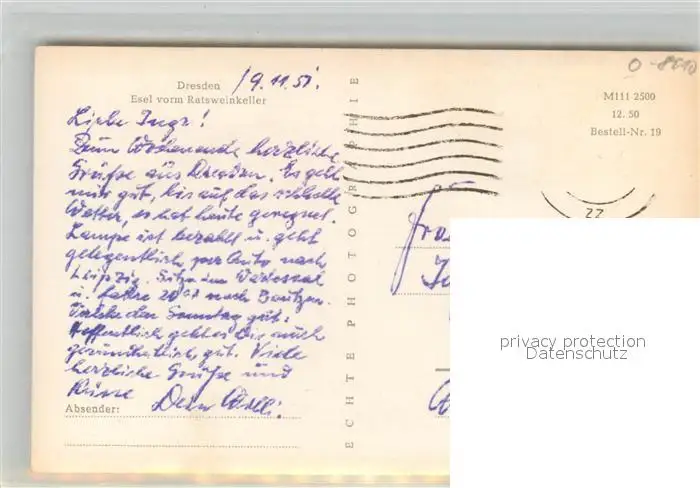 O-8010
Dresden
Esel vorm Ratsweinkeller
19.11.51.
Liebe Inge!
Zum Wochenende herzliche
Grüße aus Dresden. Es geht
mir gut, bis auf das schlechte
Wetter, es hat heute geregnet.
Lampe ist bezahlt u. geht
gelegentlich per Auto nach
Leipzig. Sitze im Wartesaal
u. fahre 20 nach Bautzen.
den Sonntag gut.
Hoffentlich geht es Dir auch
gesundheitlich gut. Viele
herzliche Grüße und
Küsse Dein Willi.
Absender:
ECHTE PHOTOGRAPHIE
M111 2500
12. 50
Bestell-Nr. 19
22
privacy protection
Datenschutz